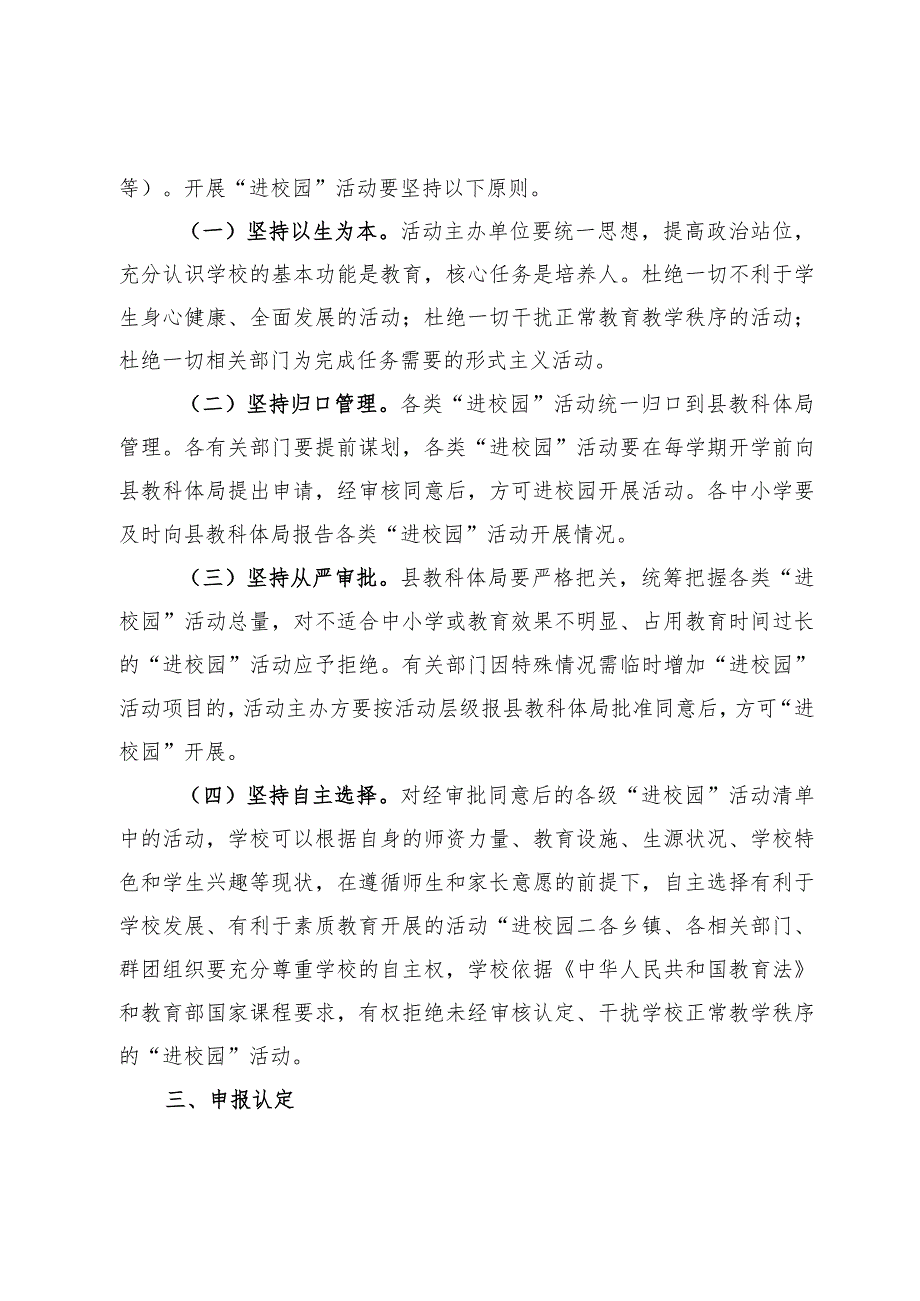 等）。开展“进校园”活动要坚持以下原则。
（一）坚持以生为本。活动主办单位要统一思想，提高政治站位，
充分认识学校的基本功能是教育，核心任务是培养人。杜绝一切不利于学
生身心健康、全面发展的活动；杜绝一切干扰正常教育教学秩序的活动；
杜绝一切相关部门为完成任务需要的形式主义活动。
（二）坚持归口管理。各类“进校园”活动统一归口到县教科体局
管理。各有关部门要提前谋划，各类“进校园”活动要在每学期开学前向
县教科体局提出申请，经审核同意后，方可进校园开展活动。各中小学要
及时向县教科体局报告各类“进校园”活动开展情况。
（三）坚持从严审批。县教科体局要严格把关，统筹把握各类“进
校园”活动总量，对不适合中小学或教育效果不明显、占用教育时间过长
的“进校园”活动应予拒绝。有关部门因特殊情况需临时增加“进校园”
活动项目的，活动主办方要按活动层级报县教科体局批准同意后，方可“进
校园”开展。
（四）坚持自主选择。对经审批同意后的各级“进校园”活动清单
中的活动，学校可以根据自身的师资力量、教育设施、生源状况、学校特
色和学生兴趣等现状，在遵循师生和家长意愿的前提下，自主选择有利于
学校发展、有利于素质教育开展的活动“进校园二各乡镇、各相关部门、
群团组织要充分尊重学校的自主权，学校依据《中华人民共和国教育法》
和教育部国家课程要求，有权拒绝未经审核认定、干扰学校正常教学秩序
的“进校园”活动。
三、申报认定